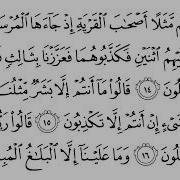 م مَّثَلًا أَصْحَٰبَ ٱلْقَرْيَةِ إِذْ جَآءَهَا ٱلْمُرْسَ
يْهِمُ ٱثْنَيْنِ فَكَذَّبُوهُمَا فَعَزَّزْنَا بِثَالِثٍ
لُونَ ١٤ قَالُوا۟ مَآ أَنتُمْ إِلَّا بَشَرٌ مِّثْلُنَا
شَىْءٍ إِنْ أَنتُمْ إِلَّا تَكْذِبُونَ ١٥ قَالُوا۟ رَبُّ
لُونَ ١٦ وَمَا عَلَيْنَآ إِلَّا ٱلْبَلَٰغُ ٱلْمُبِ